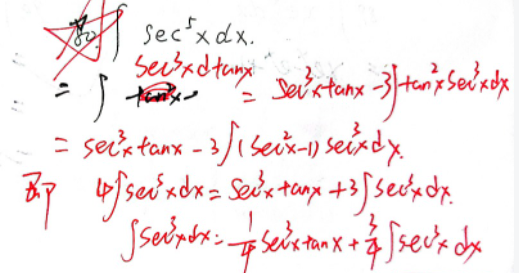 ∫ sec⁵x dx.
= ∫ sec³x d tanx = sec³x tanx - 3∫ tan²x sec³x dx
= sec³x tanx - 3∫(sec²x-1) sec³x dx.
即 4∫sec⁵x dx = sec³x tanx + 3∫sec³x dx.
∫sec³x dx = 1/4 sec³x tanx + 3/4 ∫sec³x dx